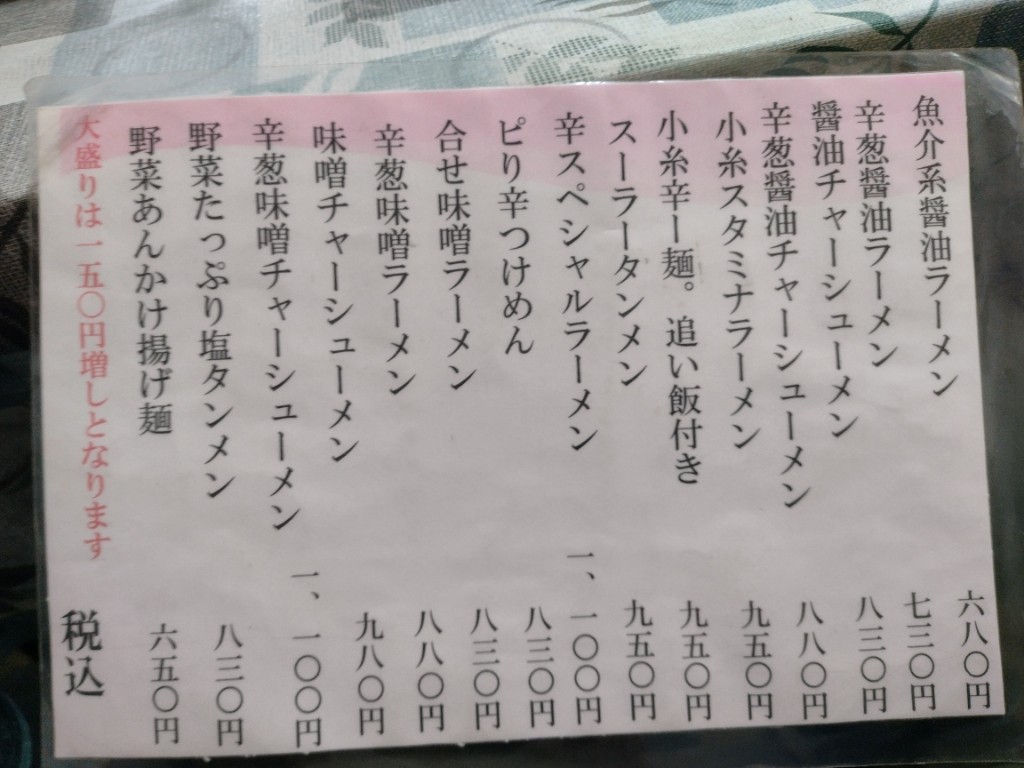 魚介系醤油ラーメン 六八〇円
辛葱醤油ラーメン 七三〇円
醤油チャーシューメン 八三〇円
辛葱醤油チャーシューメン 八八〇円
小糸スタミナラーメン 九五〇円
小糸辛一麺。追い飯付き 九五〇円
スーラータンメン 九五〇円
辛スペシャルラーメン 一、一〇〇円
ピリ辛つけめん 八三〇円
合せ味噌ラーメン 八三〇円
辛葱味噌ラーメン 八八〇円
味噌チャーシューメン 九八〇円
辛葱味噌チャーシューメン 一、一〇〇円
野菜たっぷり塩タンメン 八三〇円
野菜あんかけ揚げ麺 六五〇円
大盛りは一五〇円増しとなります
税込